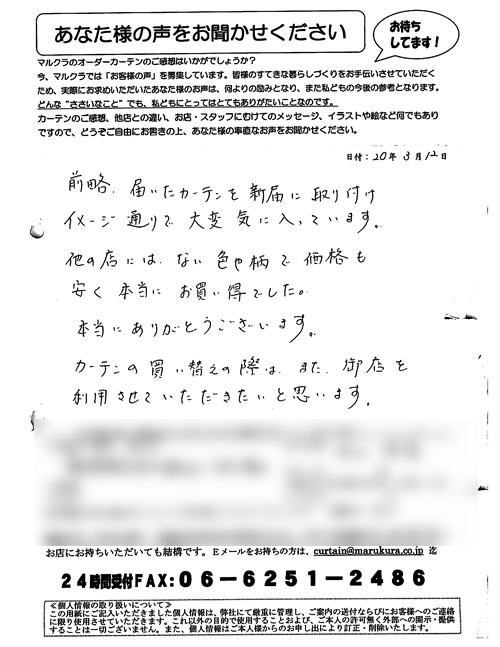 あなた様の声をお聞かせください
お待ち
してます!
マルクラのオーダーカーテンのご感想はいかがでしょうか?
今、マルクラでは「お客様の声」を募集しています。皆様のすてきな暮らしづくりをお手伝いさせていただく
ため、実際にお求めいただいたあなた様のお声は、何よりの励みとなり、また私どもの今後の参考となります。
どんな“ささいなこと”でも、私どもにとってはとてもありがたいことなのです。
カーテンのご感想、他店との違い、お店・スタッフにむけてのメッセージ、イラストや絵など何でもあり
ですので、どうぞご自由にお書きの上、あなた様の率直なお声をお聞かせください。
日付:20年3月12日
前略、届いたカーテンを新居に取り付け
イメージ通りで大変気に入っています。
他の店にはない色や柄で価格も
安く本当にお買い得でした。
本当にありがとうございます。
カーテンの買い替えの際は、また、御店を
利用させていただきたいと思います。
お店にお持ちいただいても結構です。Eメールをお持ちの方は、curtain@marukura.co.jp 迄
24時間受付FAX:06-6251-2486
≪個人情報の取り扱いについて≫
この用紙にご記入いただきました個人情報は、弊社にて厳重に管理し、ご案内の送付ならびにお客様へのご連絡
に限り使用させていただきます。これ以外の目的で使用することおよび、ご本人の許可無く外部への開示・提供
することは一切ございません。また、個人情報はご本人様からのお申し出により訂正・削除いたします。